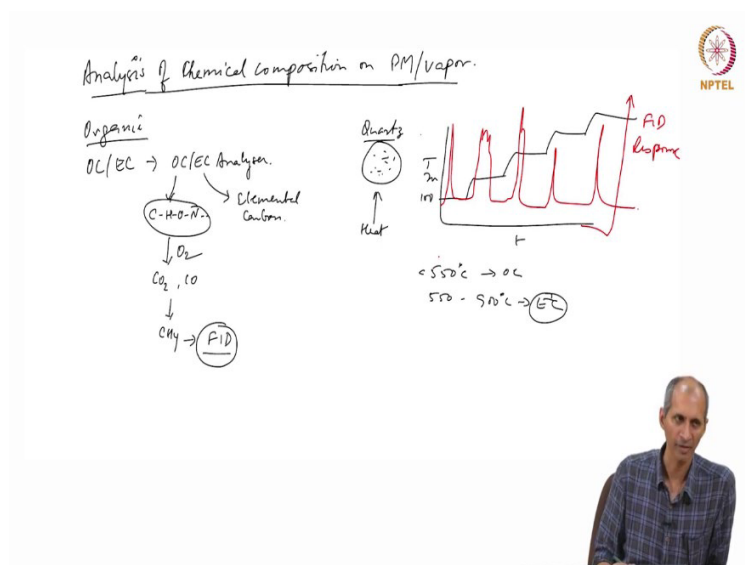 Analysis of Chemical composition on PM/vapor.
NPTEL
Organic
OC/EC → OC/EC Analyser.
Elemental
Carbon.
C-H-O-N--
O2
CO2, CO
CH4 → FID
Quartz
Heat
T
100
t
FID
Response
<550°C → OC
550 - 900°C → EC